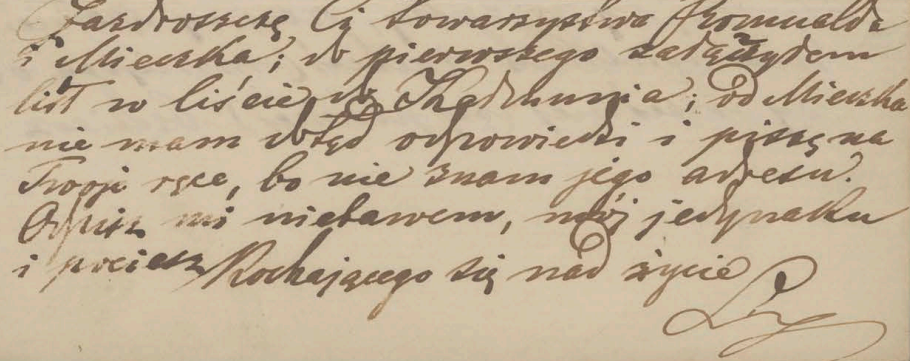 Zazdroszczę Ci towarzystwa Romualda
i Mieczka; do pierwszego
list w liście do; od Mieczka
nie mam dotąd odpowiedzi i piszę na
Twoje ręce, bo nie znam jego adresu.
Odpisz mi niebawem, mój jedynaku
i pociesz Kochającego się nad życie